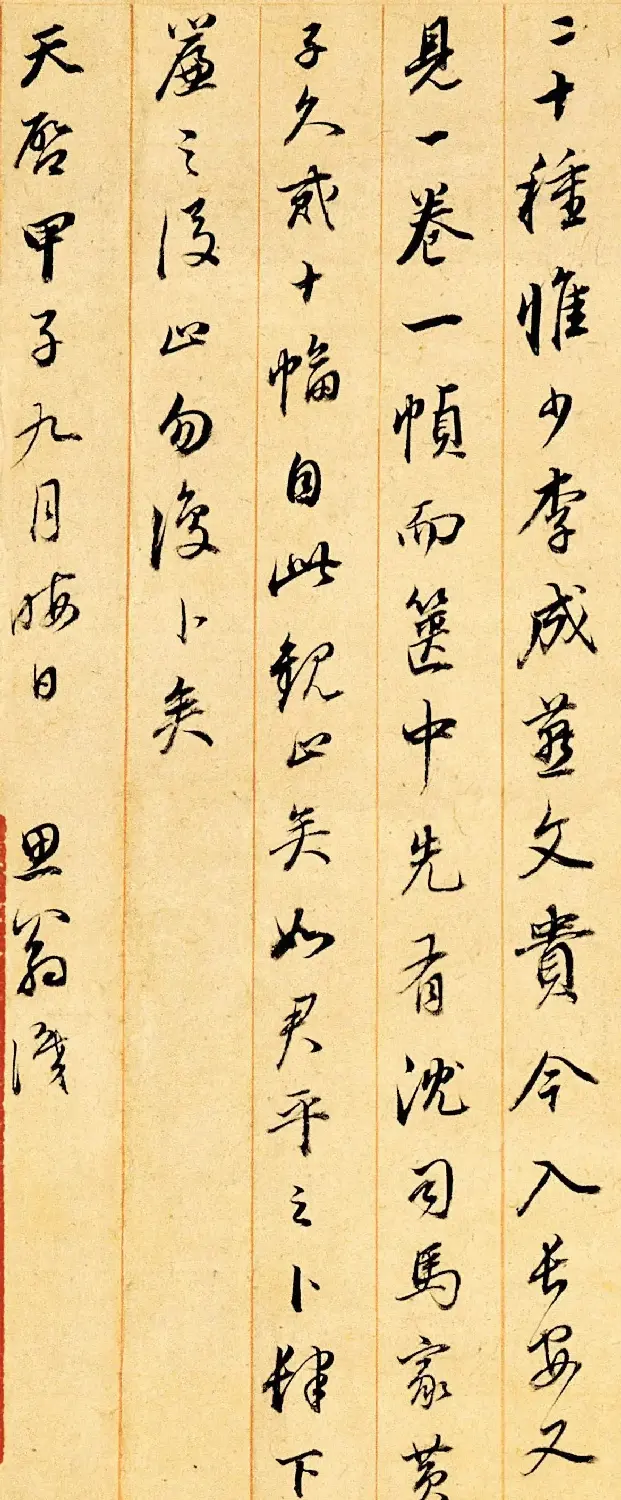 二十種惟少李成燕文貴今入長安又
見一卷一幀而篋中先有沈司馬家黃
子久貳十幅自此觀止矣如君平之卜肆下
簾之後止勿復卜矣
天啓甲子九月晦日 思翁識